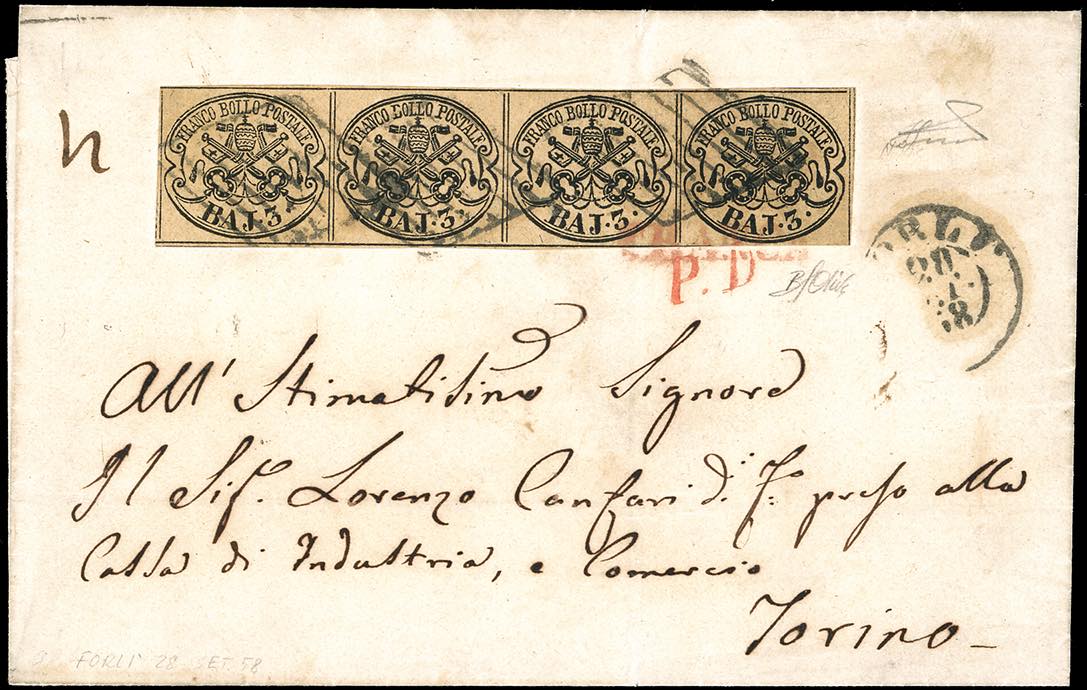 FRANCO BOLLO POSTALE FRANCO BOLLO POSTALE FRANCO BOLLO POSTALE FRANCO BOLLO POSTALE
BAJ.3. BAJ.3. BAJ.3. BAJ.3.
P. D
All' Stimatisimo Signore
Il Sig. Lorenzo Canfari di Fo. preso alla
Cassa di Industria, e Comercio
Torino
FORLI' 28 SET. 58